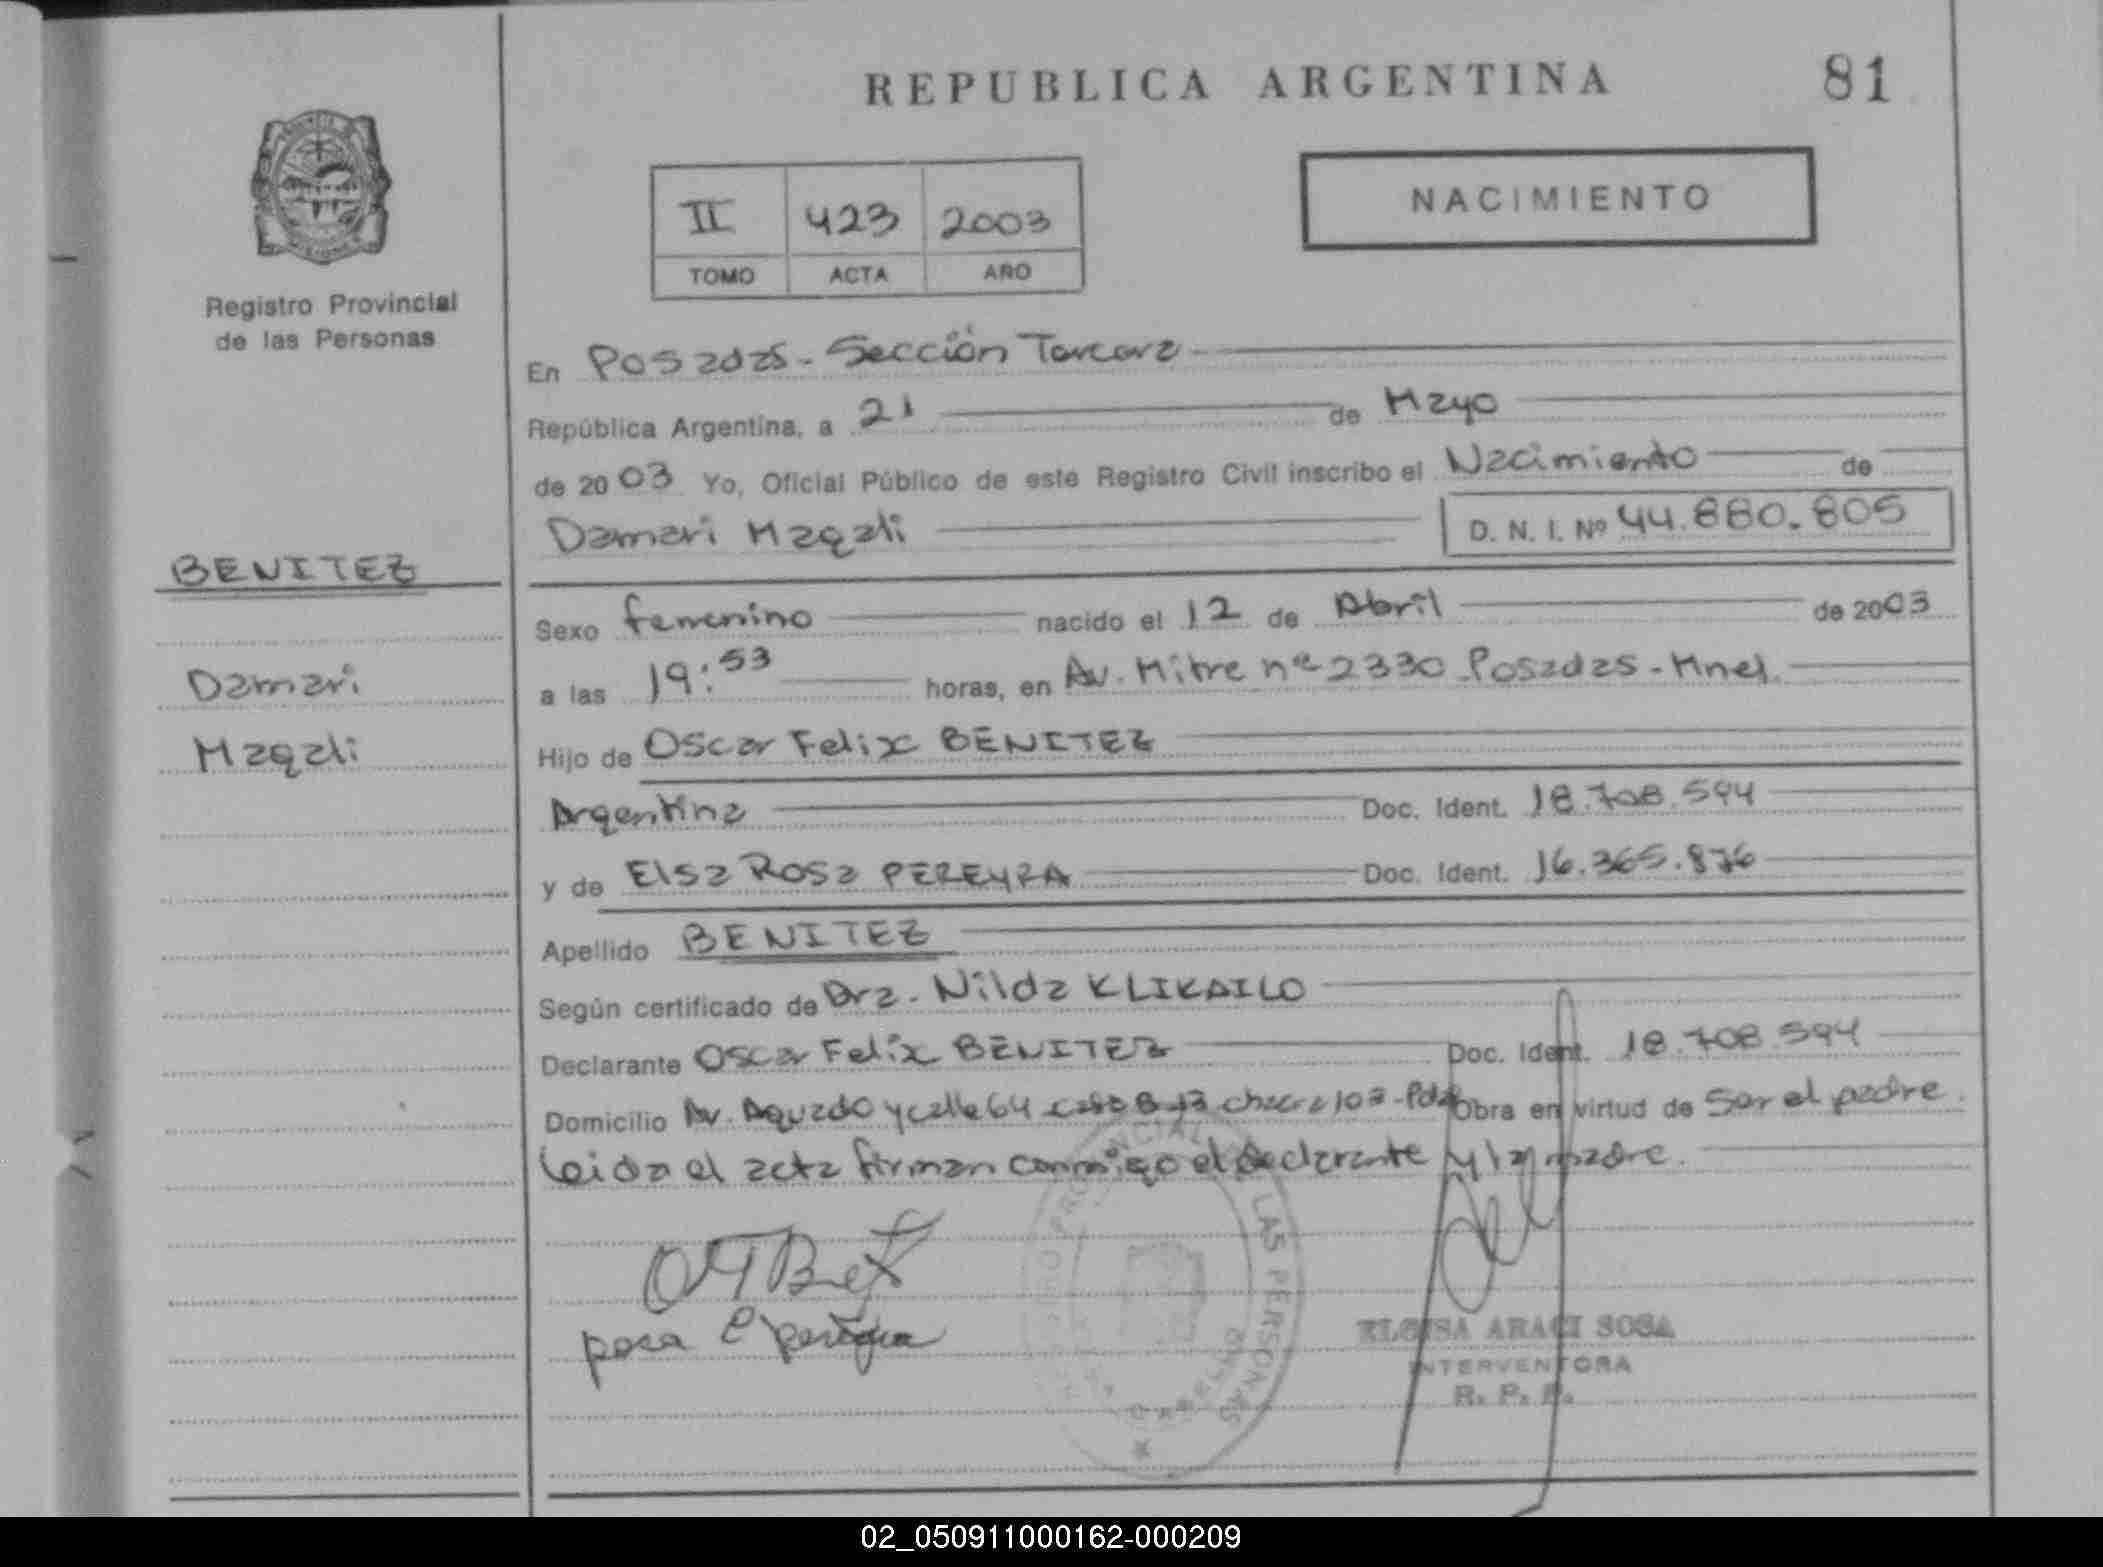 REPUBLICA ARGENTINA
81
II 423 2003
TOMO ACTA AÑO
NACIMIENTO
Registro Provincial
de las Personas
En Posadas - Sección Tercera
República Argentina, a 21 de Mayo
de 2003 Yo, Oficial Público de este Registro Civil inscribo el Nacimiento de
Damari Magali D. N. I. Nº 44.880.805
BENITEZ
Damari
Magali
Sexo femenino nacido el 12 de Abril de 2003
a las 19:53 horas, en Av. Mitre nº 2330 Posadas - Mnes.
Hijo de Oscar Felix BENITEZ
Argentina Doc. Ident. 18.708.594
y de Elsa Rosa PEREYRA Doc. Ident. 16.365.876
Apellido BENITEZ
Según certificado de Dra. Nilda KLIKAILO
Declarante Oscar Felix BENITEZ Doc. Ident. 18.708.594
Domicilio Av. Aguado y calle 64 chacra 103 - Pdas Obra en virtud de Ser el padre.
Leida el acta firman conmigo el declarante y la madre.
REGISTRO PROVINCIAL LAS PERSONAS
ELOISA ARACI SOSA
INTERVENTORA
R. P. P.
02_050911000162-000209